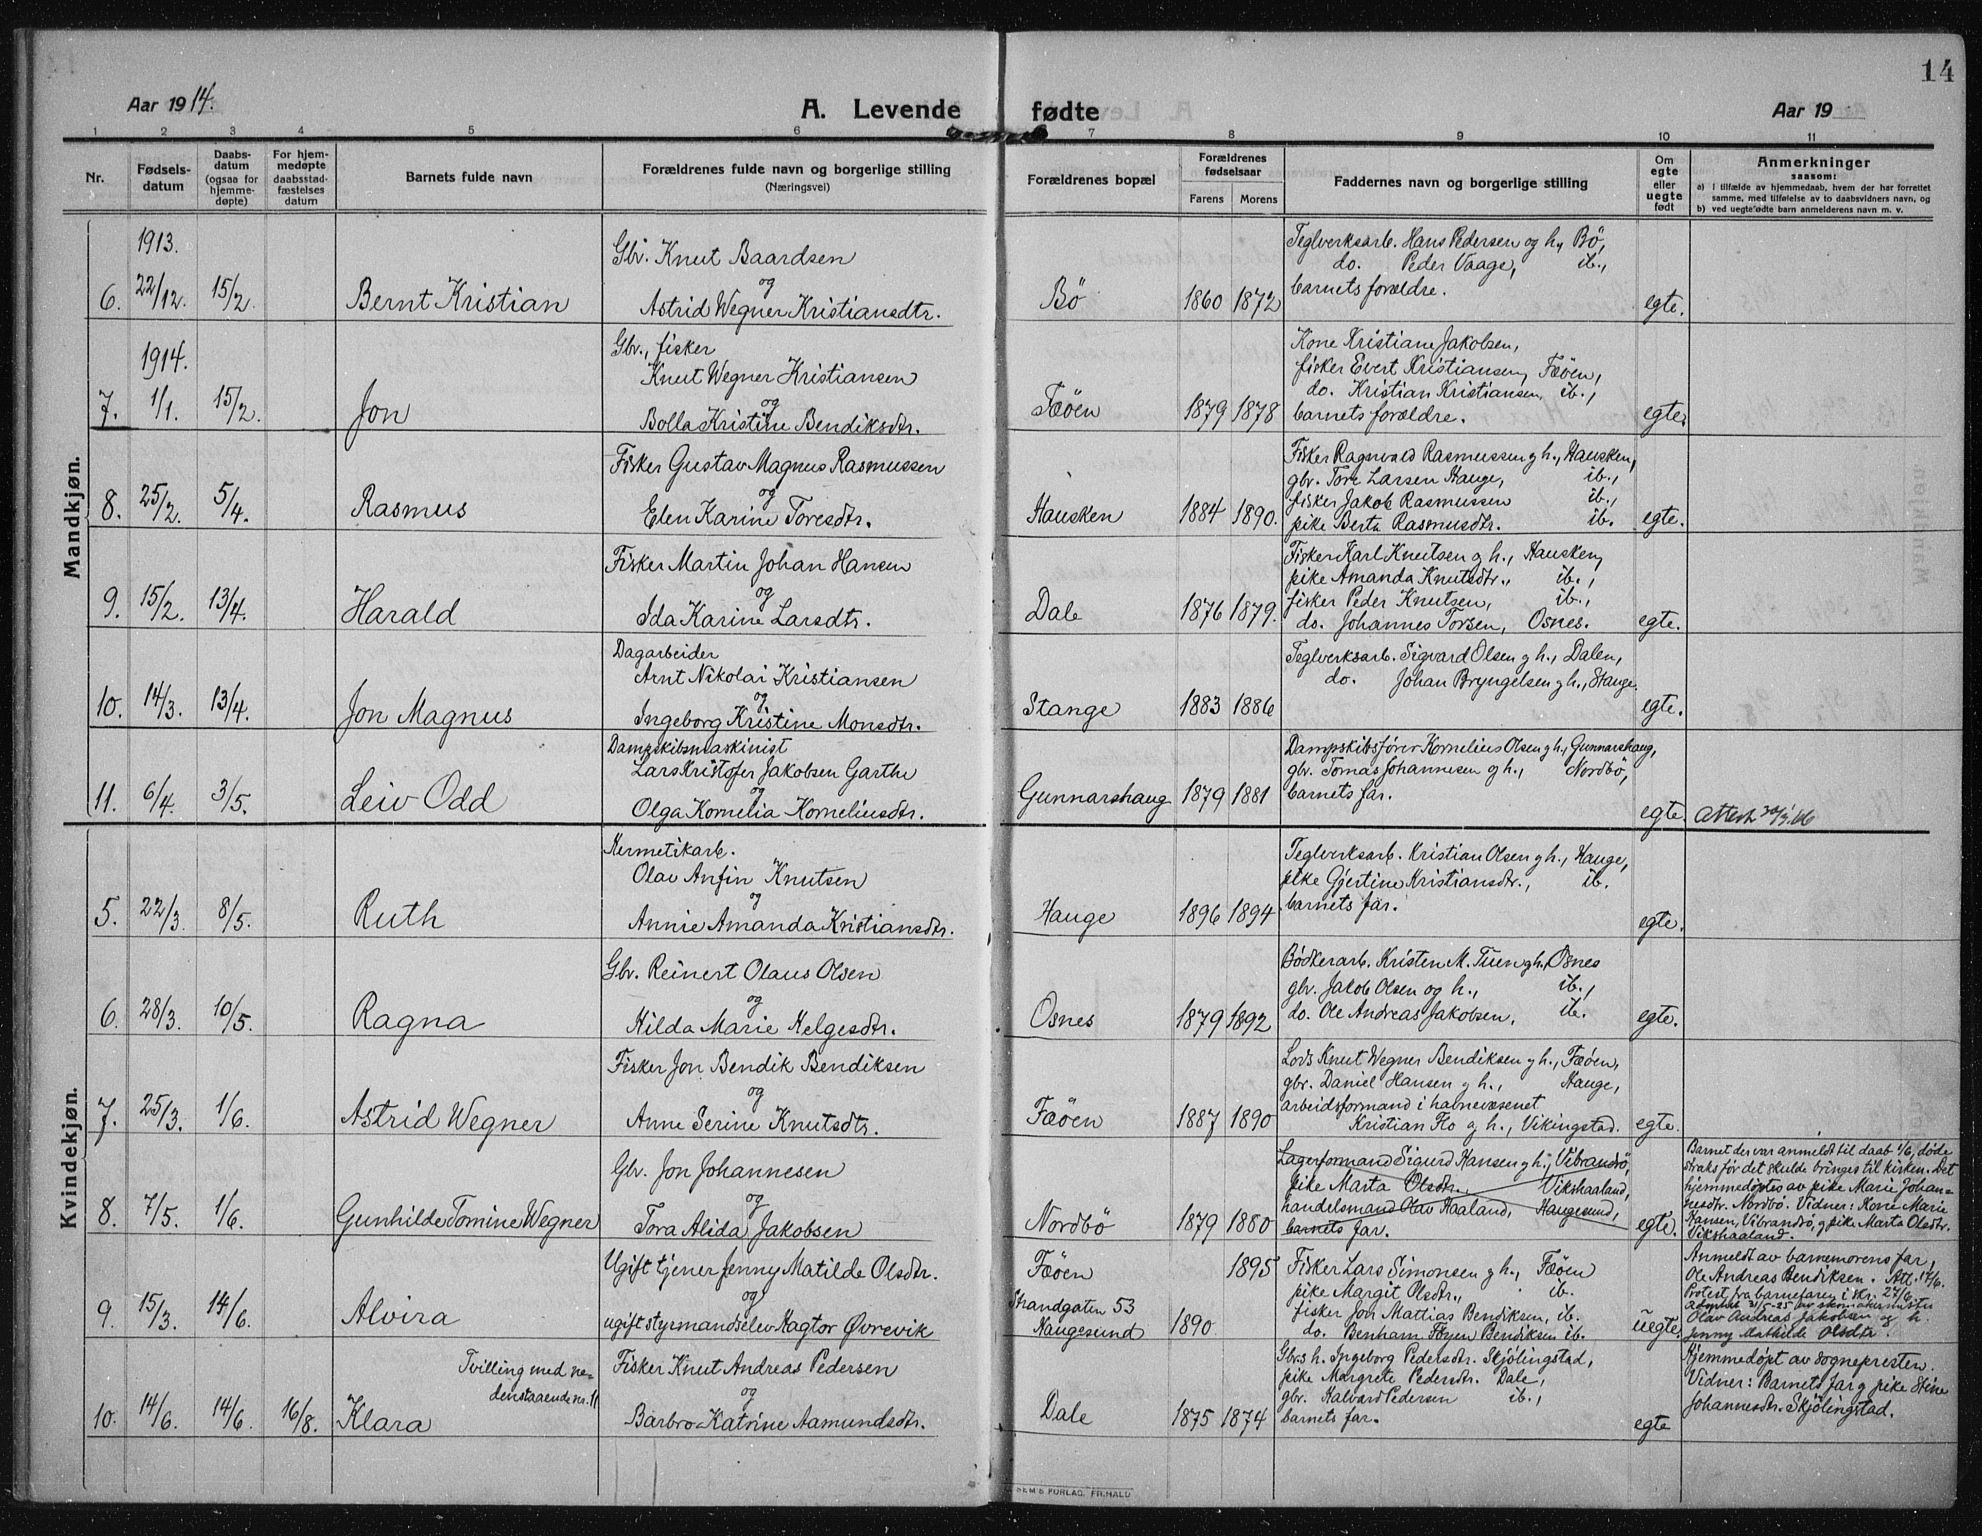 14
Aar 1914.
A. Levende fødte
Aar 19
1 2 3 4 5 6 7 8 9 10 11
Nr.
Fødsels-
datum
Daabs-
datum
(ogsaa for
hjemme-
døpte)
For hjem-
medøpte
daabsstad-
fæstelses
datum
Barnets fulde navn
Forældrenes fulde navn og borgerlige stilling
(Næringsvei)
Forældrenes bopæl
Forældrenes
fødselsaar
Farens Morens
Faddernes navn og borgerlige stilling
Om
egte
eller
uegte
født
Anmerkninger
saasom:
a) i tilfælde av hjemmedaab, hvem der har forrettet
samme, med tilføielse av to daabsvidners navn, og
b) ved uegtefødte barn anmelderens navn m. v.
Mandkjøn.
1913.
6. 22/12. 15/2. Bernt Kristian
Gbr. Knut Baardsen
og
Astrid Wegner Kristiansdtr.
Bö 1860 1872
Teglverksarb. Hans Pedersen og h., Bö,
do. Peder Vaage, ib.,
barnets forældre.
egte.
1914.
7. 1/1. 15/2. Jon
Gbr., fisker
Knut Wegner Kristiansen
og
Bolla Kristine Bendiksdtr.
Fæöen 1879 1878
Kone Kristiane Jakobsen,
fisker Evert Kristiansen, Fæöen,
do. Kristian Kristiansen, ib.,
barnets forældre.
egte.
8. 25/2. 5/4. Rasmus
Fisker Gustav Magnus Rasmussen
og
Elen Karine Toresdtr.
Hausken 1884 1890.
Fisker Ragnvald Rasmussen g h., Hausken,
gbr. Tore Larsen Hauge, ib.,
fisker Jakob Rasmussen ib.,
pike Berta Rasmusdtr. ib.
egte.
9. 15/2. 13/4. Harald
Fisker Martin Johan Hansen
og
Ida Karine Larsdtr.
Dale 1876 1879.
Fisker Karl Knutsen g h., Hausken,
pike Amanda Knutsdtr., ib.,
fisker Peder Knutsen, ib.,
do. Johannes Torsen, Osnes.
egte.
10. 14/3. 13/4. Jon Magnus
Dagarbeider
Arnt Nikolai Kristiansen
og
Ingeborg Kristine Monsdtr.
Stange 1883 1886
Teglverksarb. Sigvard Olsen g h., Dalen,
do. Johan Bryngelsen g h., Stange.
egte.
11. 6/4. 3/5. Leiv Odd
Dampskibsmaskinist
Lars Kristofer Jakobsen Garthe
og
Olga Kornelia Korneliusdtr.
Gunnarshaug 1879 1881
Dampskibsfører Kornelius Olsen g h., Gunnarshaug,
gbr. Tomas Johannesen g h., Nordbö,
barnets far.
egte.
Kvindekjøn.
5. 22/3. 8/5. Ruth
Hermetikarb.
Olav Anfin Knutsen
og
Annie Amanda Kristiansdtr.
Hauge 1896 1894
Teglverksarb. Kristian Olsen g h., Hauge,
pike Gjertine Kristiansdtr., ib.
barnets far.
egte.
6. 28/3. 10/5. Ragna
Gbr. Reinert Olaus Olsen
og
Hilda Marie Helgesdtr.
Osnes 1879 1892
Bödkerarb. Kristen M. Tuen g h., Osnes
gbr. Jakob Olsen og h., ib.,
do. Ole Andreas Jakobsen, ib.
egte.
7. 25/3. 1/6. Astrid Wegner
Fisker Jon Bendik Bendiksen
og
Anne Serine Knutsdtr.
Fæöen 1887 1890
Lods Knut Wegner Bendiksen g h., Fæöen,
gbr. Daniel Hansen g h., Hauge,
arbeidsformand i havnevæsenet
Kristian Flo og h., Vikingstad.
egte.
8. 7/5. 1/6. Gunhilde Tomine Wegner
Gbr. Jon Johannesen
og
Tora Alida Jakobsen
Nordbö 1879 1880
Lagerformand Sigurd Hansen g h., Vibrandsö,
pike Marta Olsdtr., Vikshaaland,
handelsmand Olav Haaland, Haugesund,
barnets far.
egte.
Barnet der var anmeldt til daab 1/6, døde
straks før det skulde bringes til kirken. Det
hjemmedöptes av pike Marie Johan-
nesdtr. Nordbö. Vidner: Kone Marie
Hansen, Vibrandsö, g pike Marta Olsdtr.
Vikshaaland.
9. 15/3. 14/6. Alvira
Ugift tjener Jenny Matilde Olsdtr.
og
ugift styrmandselev Hagtor Øvrevik
Fæöen 1895
Strandgaten 53
Haugesund 1890.
Fisker Lars Simonsen g h., Fæöen
pike Margit Olsdtr., ib.
fisker Jon Mattias Bendiksen, ib.
do. Benham Föyen Bendiksen ib.
uegte.
Anmeldt av barnemorens far,
Ole Andreas Bendiksen. Att. 17/6.
Protest fra barnefaren i skr. 27/6.
Adoptert 21/5-25 av skomakermester
Olav Andreas Jakobsen og h.
Jenny Mathilde Olsdtr.
10. 14/6. 14/6. 16/8. Klara
Tvilling med ne-
denstaaende nr. 11
Fisker Knut Andreas Pedersen
og
Barbro Katrine Aamundsdtr.
Dale 1875 1874
Gbr.s h. Ingeborg Pedersdtr. Skjölingstad,
pike Margrete Pedersdtr. Dale,
gbr. Halvard Pedersen ib.,
barnets far.
egte
Hjemmedöpt av sognepresten.
Vidner: Barnets far g pike Stine
Johannesdtr. Skjölingstad.
SEM'S FORLAG, FR.HALD